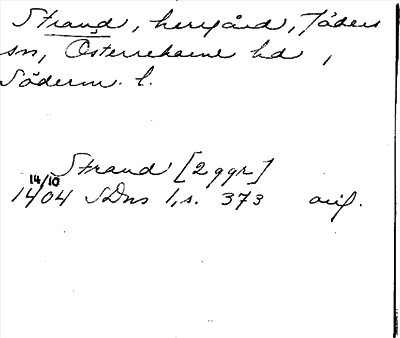 Strand, herrgård, Jäders
sn, Österrekarne hd,
Söderm. l.
Strand [2 ggr]
14/10
1404 SDns 1, s. 373 orig.